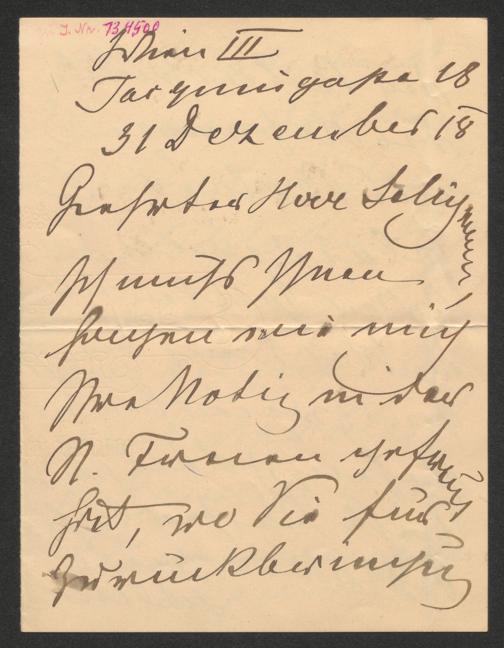 J. Nr. 134500
Wien III
Jacquingasse 18
31 Dezember 18
Geehrter Herr Seligmann,
Ich muss Ihnen
sagen wie mich
Ihre Notiz in der
N. Freien gefreut
hat, wo Sie für
Zurückbringung